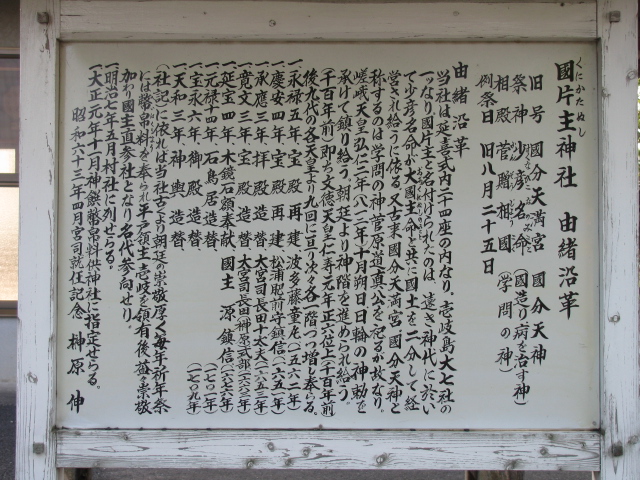 國片主神社 由緒沿革
くにかたぬし
旧号 國分天満宮 國分天神
祭神 少彦名命 (國造り病を治す神)
相殿 菅贈相國 (学問の神)
例祭日 旧八月二十五日
由緒沿革
当社は延喜式内二十四座の内なり。壱岐島大七社の
一ツなり國片主と名付けられたのは、遠き神代に於い
て少彦名命が大國主命と共に國土を二分して経
営され給うに依る。又古来國分天満宮、國分天神と
称するのは学問の神菅原道真公を祀るが故なり。
嵯峨天皇弘仁二年(八一二年)十月朔日日輪の神勅を
承けて鎮り給う。朝廷より神階を進められ給う。
(千百年前)即ち文徳天皇仁寿元年正六位上(千百年前)
後九代の各天皇より九回に亘り次々各一階づつ増し奉らる。
一永禄五年、宝殿再建、波多藤童丸(一五六二年)
一慶安四年、宝殿再建、松浦肥前守鎮信(一六五一年)
一承應三年、拝殿造替、大宮司長田十太夫(一六五三年)
一寛文三年、宝殿造替、大宮司長田(榊原)式部(一六六三年)
一延宝四年、木鏡石額奉献、國主 源鎮信(一六七六年)
一元禄十四年、石鳥居造替、(一七〇一年)
一宝永六年、御殿造替、(一七〇九年)
一天和三年、神輿造替、
(社記)に依れは当社古くより朝廷の崇敬厚く毎年祈年祭
には幣帛料を奉られ平戸領主、壱岐を領有後益々崇敬
加わり國主直参社となり名代参向せり。
一明治七年五月村社に列せらる。
一大正元年十一月神饌幣帛料供神社に指定せらる。
昭和六十三年四月宮司就任記念 榊原 伸